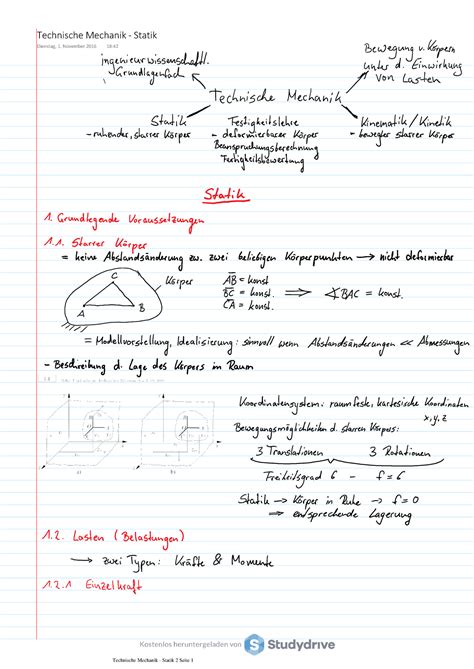 Technische Mechanik - Statik
Dienstag, 1. November 2016 18:42
ingenieurwissenschaftl. Grundlagenfach
Bewegung v. Körpern
unter d. Einwirkung
von Lasten
Technische Mechanik
Statik
- ruhender, starrer Körper
Festigkeitslehre
- deformierbarer Körper
Beanspruchungsberechnung
Festigkeitsbewertung
Kinematik / Kinetik
- bewegter starrer Körper
Statik
1. Grundlegende Voraussetzungen
1.1. Starrer Körper
= keine Abstandsänderung zw. zwei beliebigen Körperpunkten → nicht deformierbar
Körper
A B C
AB = konst
BC = konst. ⟹ ∢BAC = konst.
CA = konst.
= Modellvorstellung, Idealisierung: sinnvoll wenn Abstandsänderungen << Abmessungen
- Beschreibung d. Lage des Körpers im Raum
Koordinatensystem: raumfeste, kartesische Koordinaten
x, y, z
Bewegungsmöglichkeiten d. starren Körpers:
3 Translationen 3 Rotationen
Freiheitsgrad 6 - f = 6
Statik → Körper in Ruhe → f = 0
⇒ entsprechende Lagerung
1.2. Lasten (Belastungen)
→ zwei Typen: Kräfte & Momente
1.2.1 Einzelkraft
Kostenlos heruntergeladen von S Studydrive
Technische Mechanik - Statik 2 Seite 1